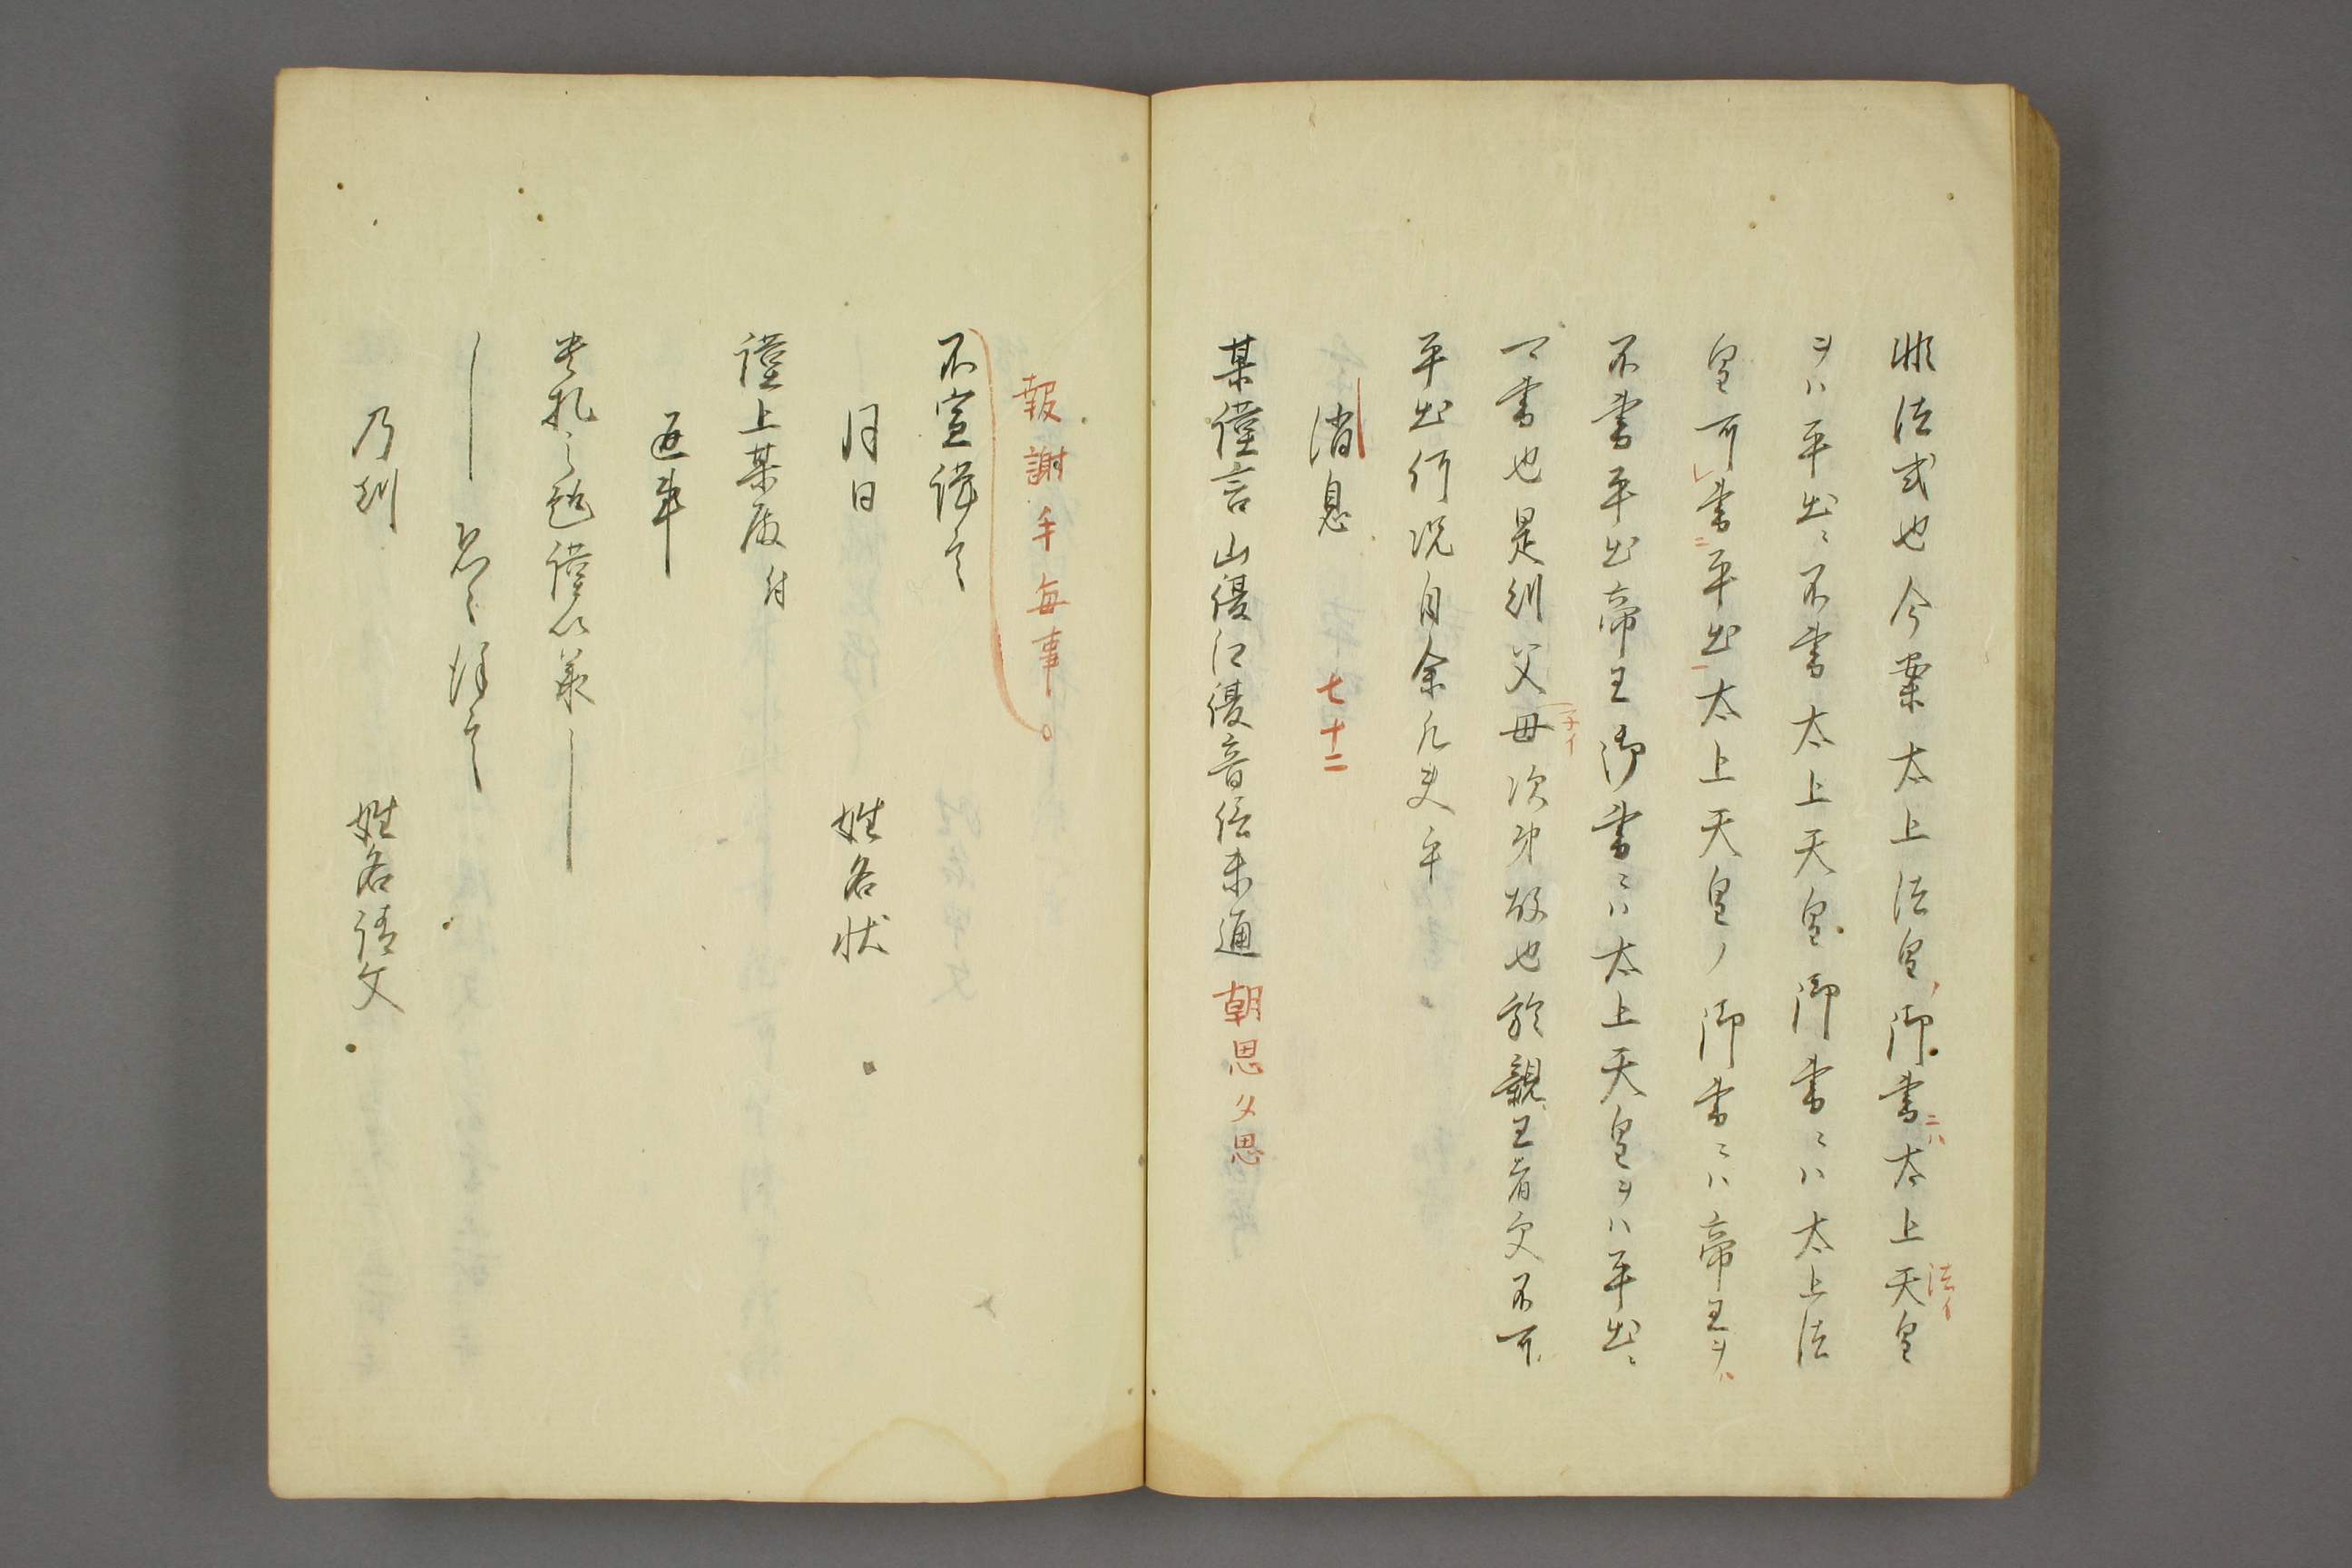 法式也今案太上法皇御書ニハ太上天皇
ヲハ平出〻不書太上天皇御書〻ハ太上法
皇可書平出太上天皇ノ御書〻ハ帝王ヲハ
不書平出帝王御書〻ハ太上天皇ヲハ平出〻
書也是則父母次第故也於親王者更不可
平出何況自余凡史乎
消息 七十二
某謹言山優江優音信未通朝思夕思
報謝千毎事。
不宣謹言
月日 姓名状
謹上某殿 付
返事
貴札之趣謹以承
恐〻謹言
乃刻 姓名請文